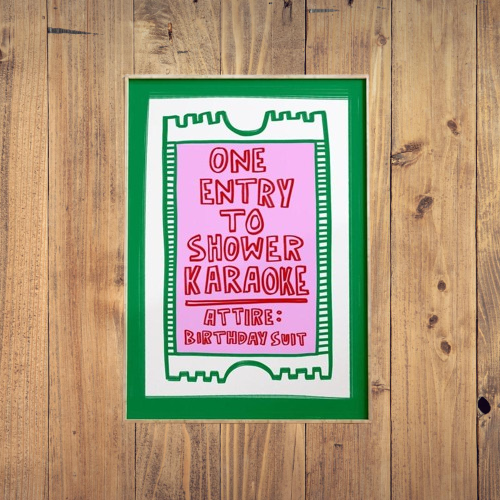 ONE
ENTRY
TO
SHOWER
KARAOKE
ATTIRE:
BIRTHDAY SUIT